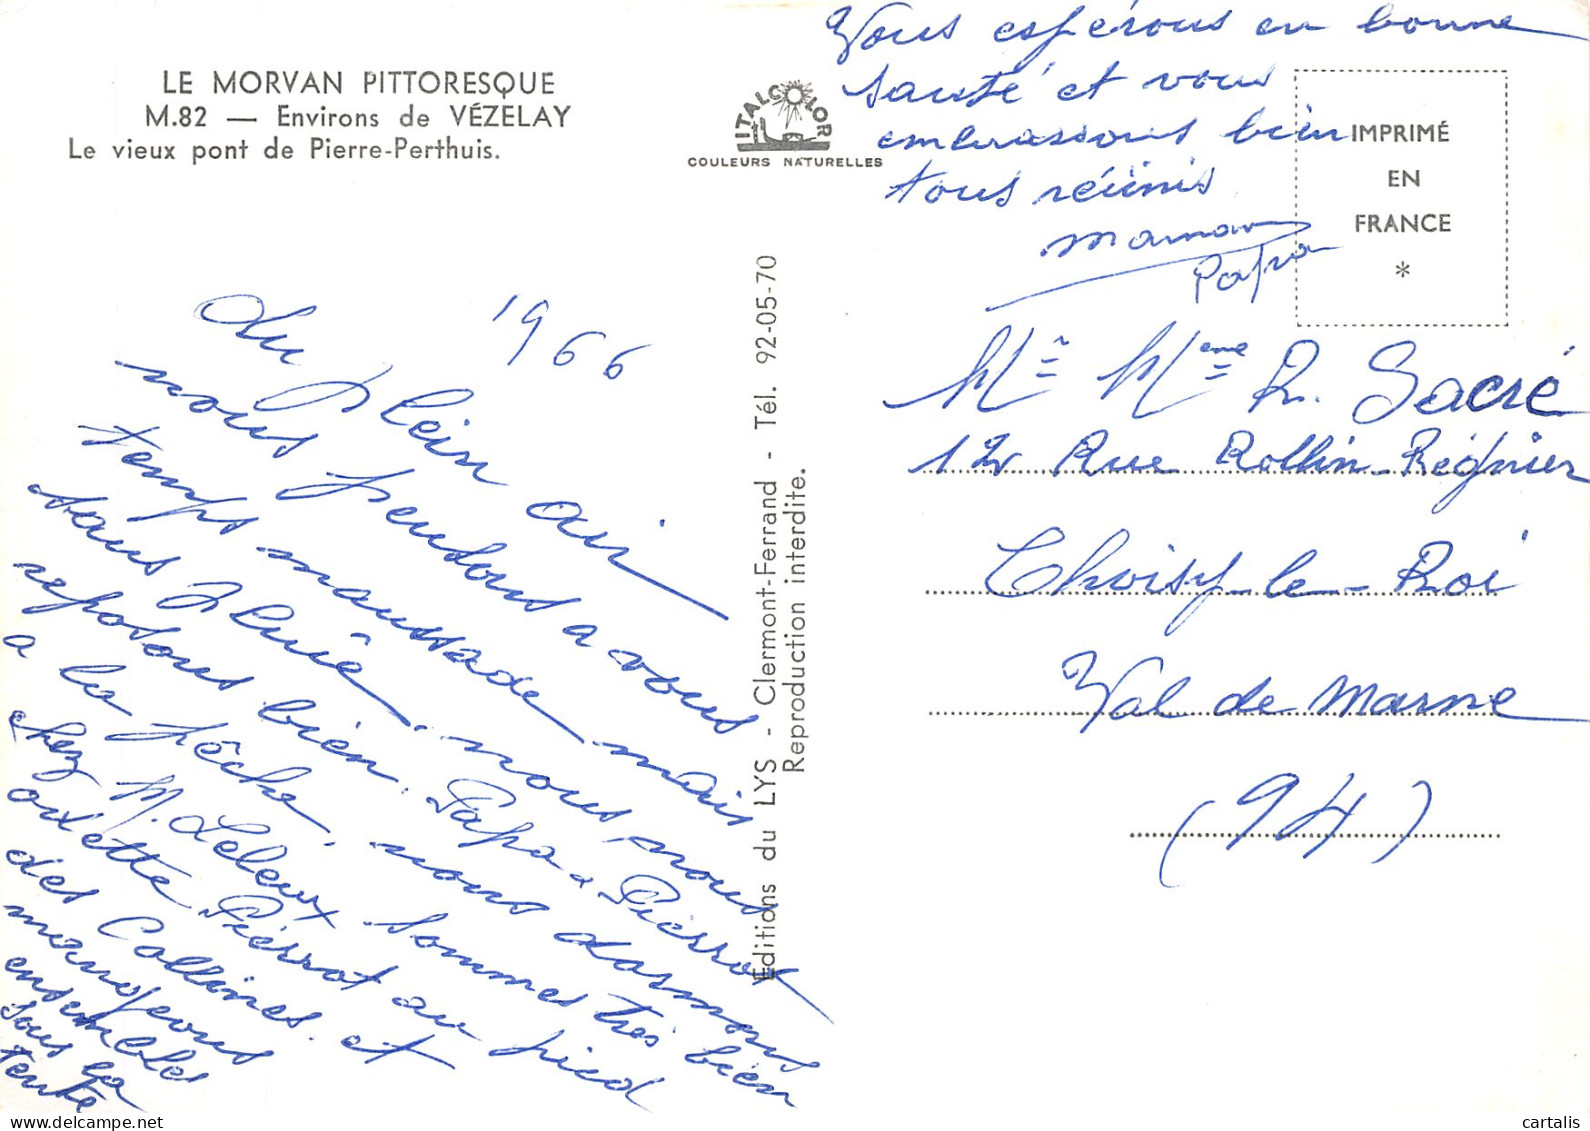 LE MORVAN PITTORESQUE
M.82 — Environs de VÉZELAY
Le vieux pont de Pierre-Perthuis.
ITALCOLOR
COULEURS NATURELLES
1966
Du plein air
nous pendons a vous
temps maussade, mais
sans pluie. nous, nous
reposons bien. Papa & Pierrot
a la pêche, nous dormons
chez M. Leleux. sommes très bien
Pierrot au pied
des Collines. et
mangeons
ensemble
sous la
tente
Vous espérons en bonne
santé et vous
embrassons bien
tous réunis
maman
Papa
Editions du LYS - Clermont-Ferrand - Tél. 92-05-70
Reproduction interdite.
IMPRIMÉ
EN
FRANCE
*
Mr Mme R. Sacré
12 Rue Rollin-Régnier
Choisy-le-Roi
Val de Marne
(94)
cartalis
www.delcampe.net